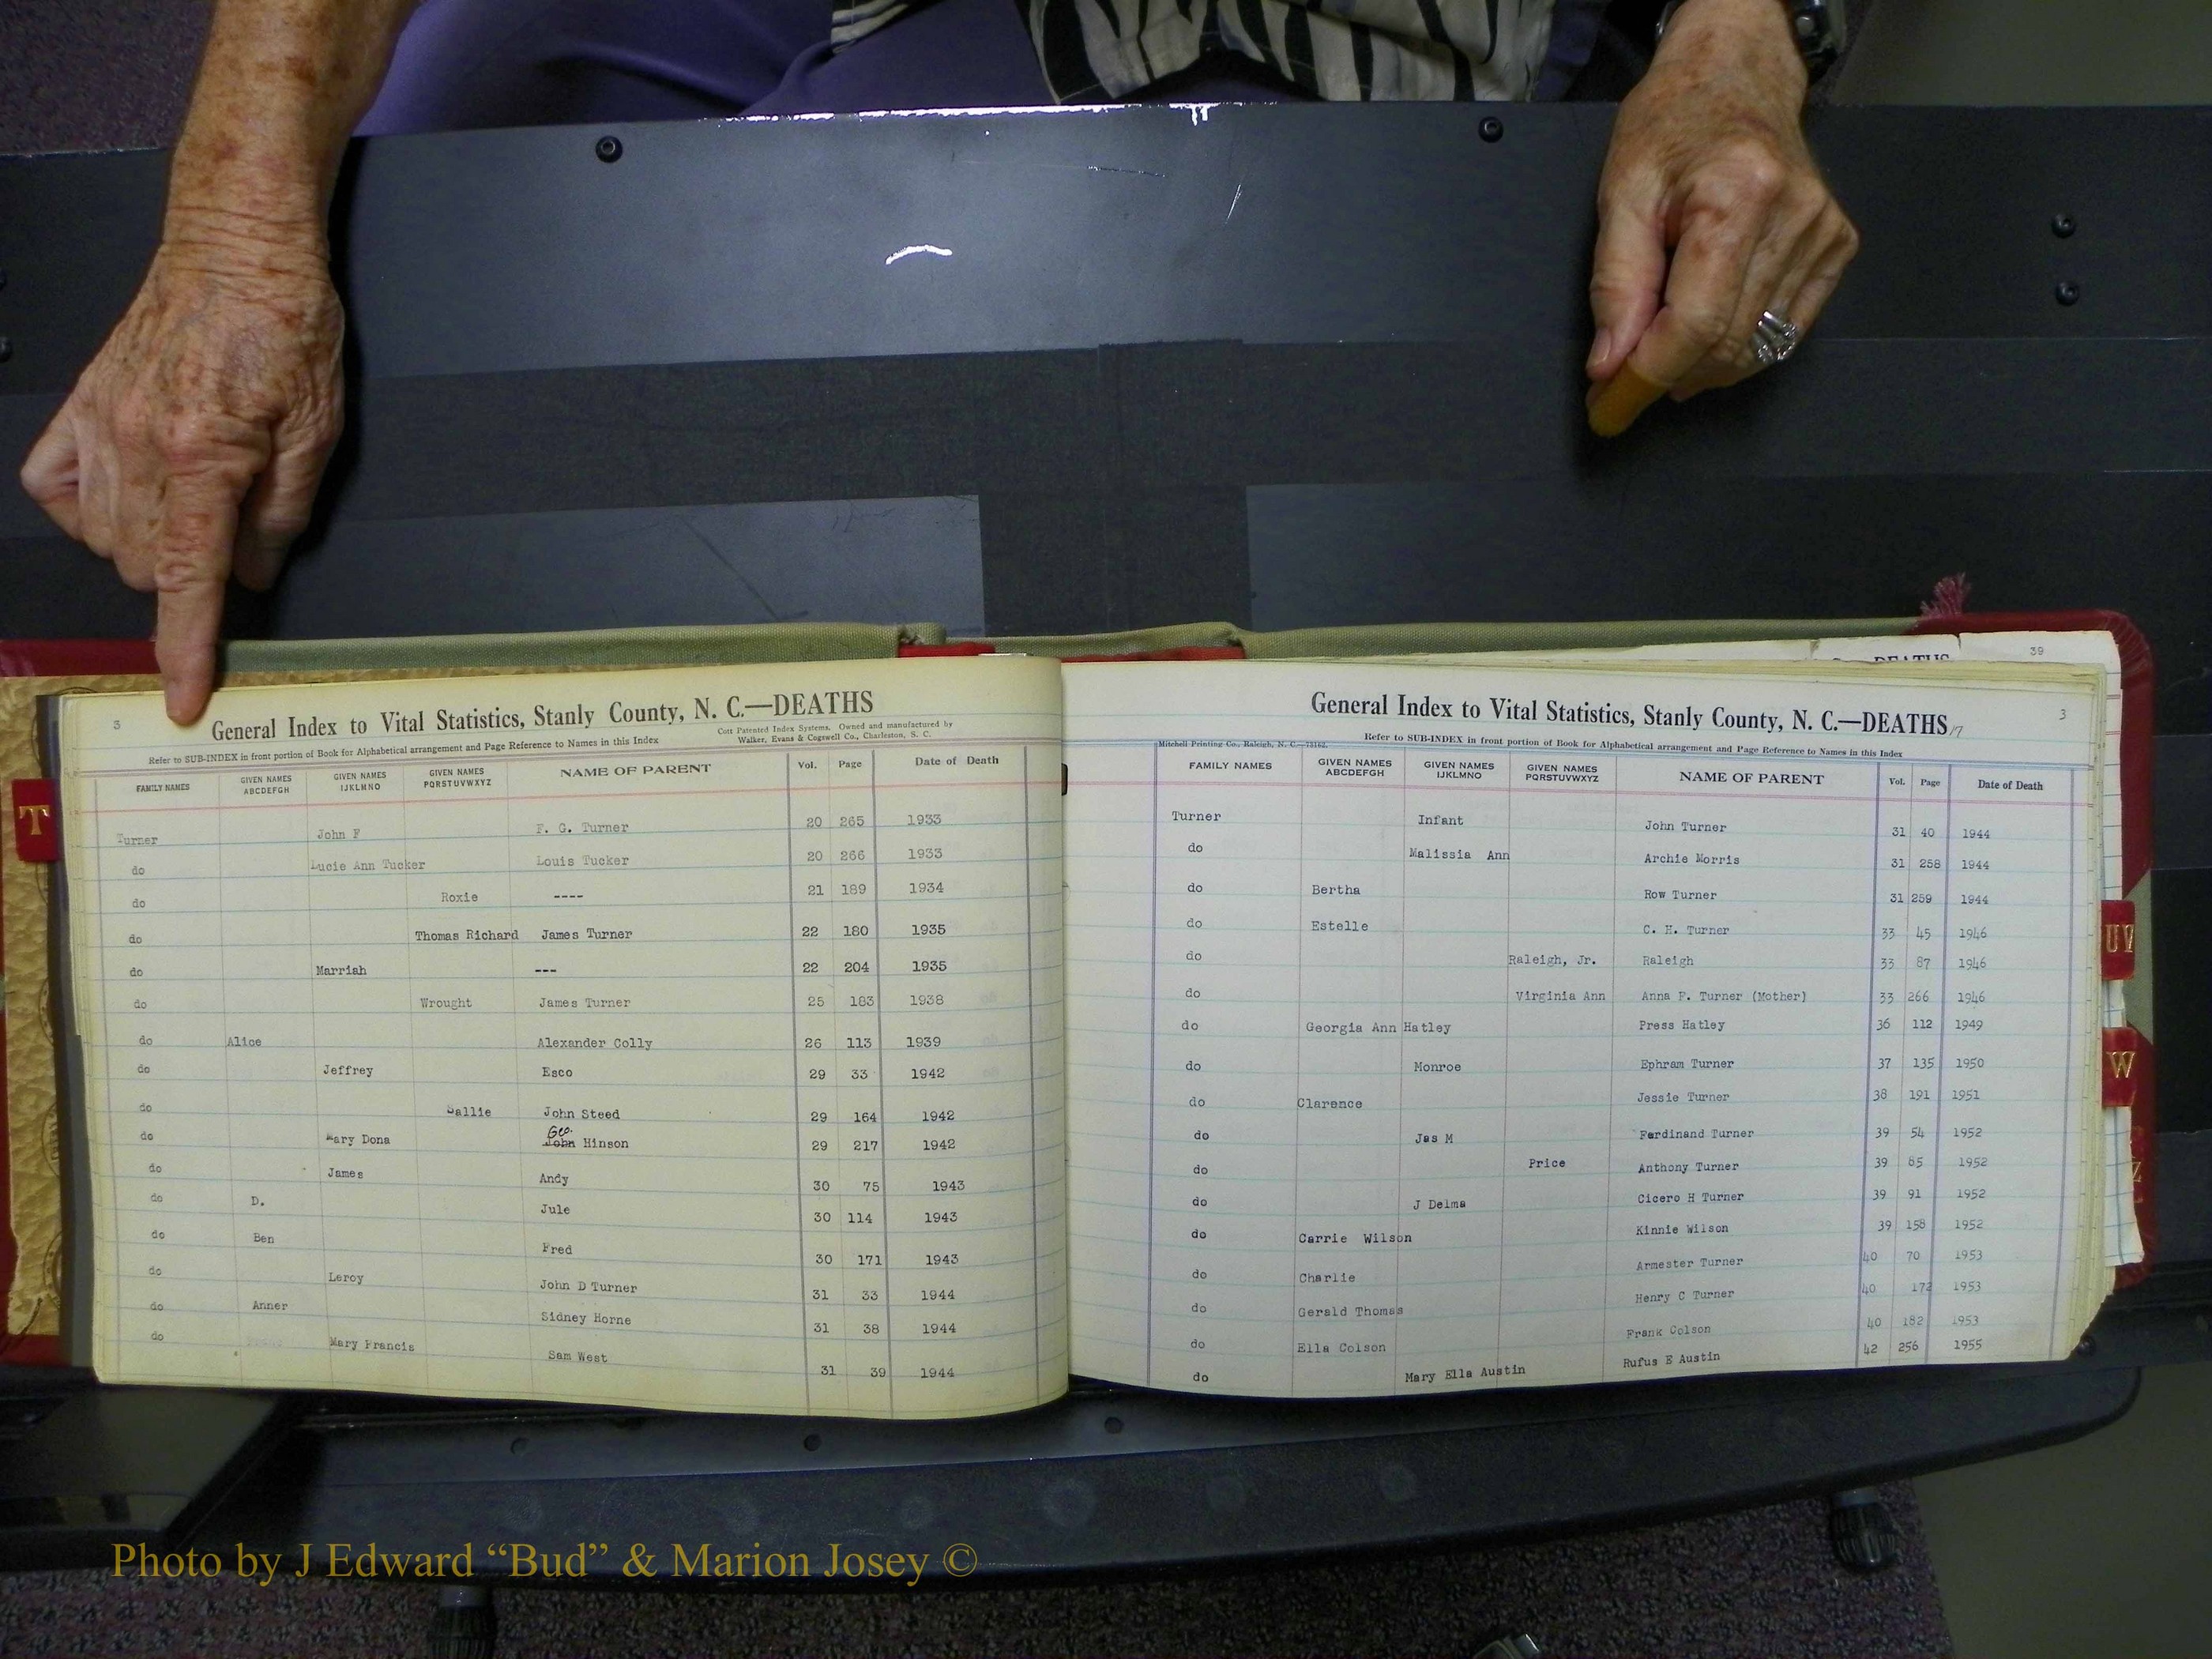 3
General Index to Vital Statistics, Stanly County, N. C.—DEATHS
Cott Patented Index Systems. Owned and manufactured by
Walker, Evans & Cogswell Co., Charleston, S. C.
Refer to SUB-INDEX in front portion of Book for Alphabetical arrangement and Page Reference to Names in this Index
FAMILY NAMES GIVEN NAMES ABCDEFGH GIVEN NAMES IJKLMNO GIVEN NAMES PQRSTUVWXYZ NAME OF PARENT Vol. Page Date of Death
Turner John F F. G. Turner 20 265 1933
do Lucie Ann Tucker Louis Tucker 20 266 1933
do Roxie ---- 21 189 1934
do Thomas Richard James Turner 22 180 1935
do Marriah --- 22 204 1935
do Wrought James Turner 25 183 1938
do Alice Alexander Colly 26 113 1939
do Jeffrey Esco 29 33 1942
do Sallie John Steed 29 164 1942
do Mary Dona Geo. John Hinson 29 217 1942
do James Andy 30 75 1943
do D. Jule 30 114 1943
do Ben Fred 30 171 1943
do Leroy John D Turner 31 33 1944
do Anner Sidney Horne 31 38 1944
do Mary Francis Sam West 31 39 1944
T
39
DEATHS
General Index to Vital Statistics, Stanly County, N. C.—DEATHS 17
3
Refer to SUB-INDEX in front portion of Book for Alphabetical arrangement and Page Reference to Names in this Index
Mitchell Printing Co., Raleigh, N. C.—73162.
FAMILY NAMES GIVEN NAMES ABCDEFGH GIVEN NAMES IJKLMNO GIVEN NAMES PQRSTUVWXYZ NAME OF PARENT Vol. Page Date of Death
Turner Infant John Turner 31 40 1944
do Malissia Ann Archie Morris 31 258 1944
do Bertha Row Turner 31 259 1944
do Estelle C. H. Turner 33 45 1946
do Raleigh, Jr. Raleigh 33 87 1946
do Virginia Ann Anna F. Turner (Mother) 33 266 1946
do Georgia Ann Hatley Press Hatley 36 112 1949
do Monroe Ephram Turner 37 135 1950
do Clarence Jessie Turner 38 191 1951
do Jas M Ferdinand Turner 39 54 1952
do Price Anthony Turner 39 85 1952
do J Delma Cicero H Turner 39 91 1952
do Carrie Wilson Kinnie Wilson 39 158 1952
do Charlie Armester Turner 40 70 1953
do Gerald Thomas Henry C Turner 40 172 1953
do Ella Colson Frank Colson 40 182 1953
do Mary Ella Austin Rufus E Austin 42 256 1955
UV
W
Z
Photo by J Edward “Bud” & Marion Josey ©